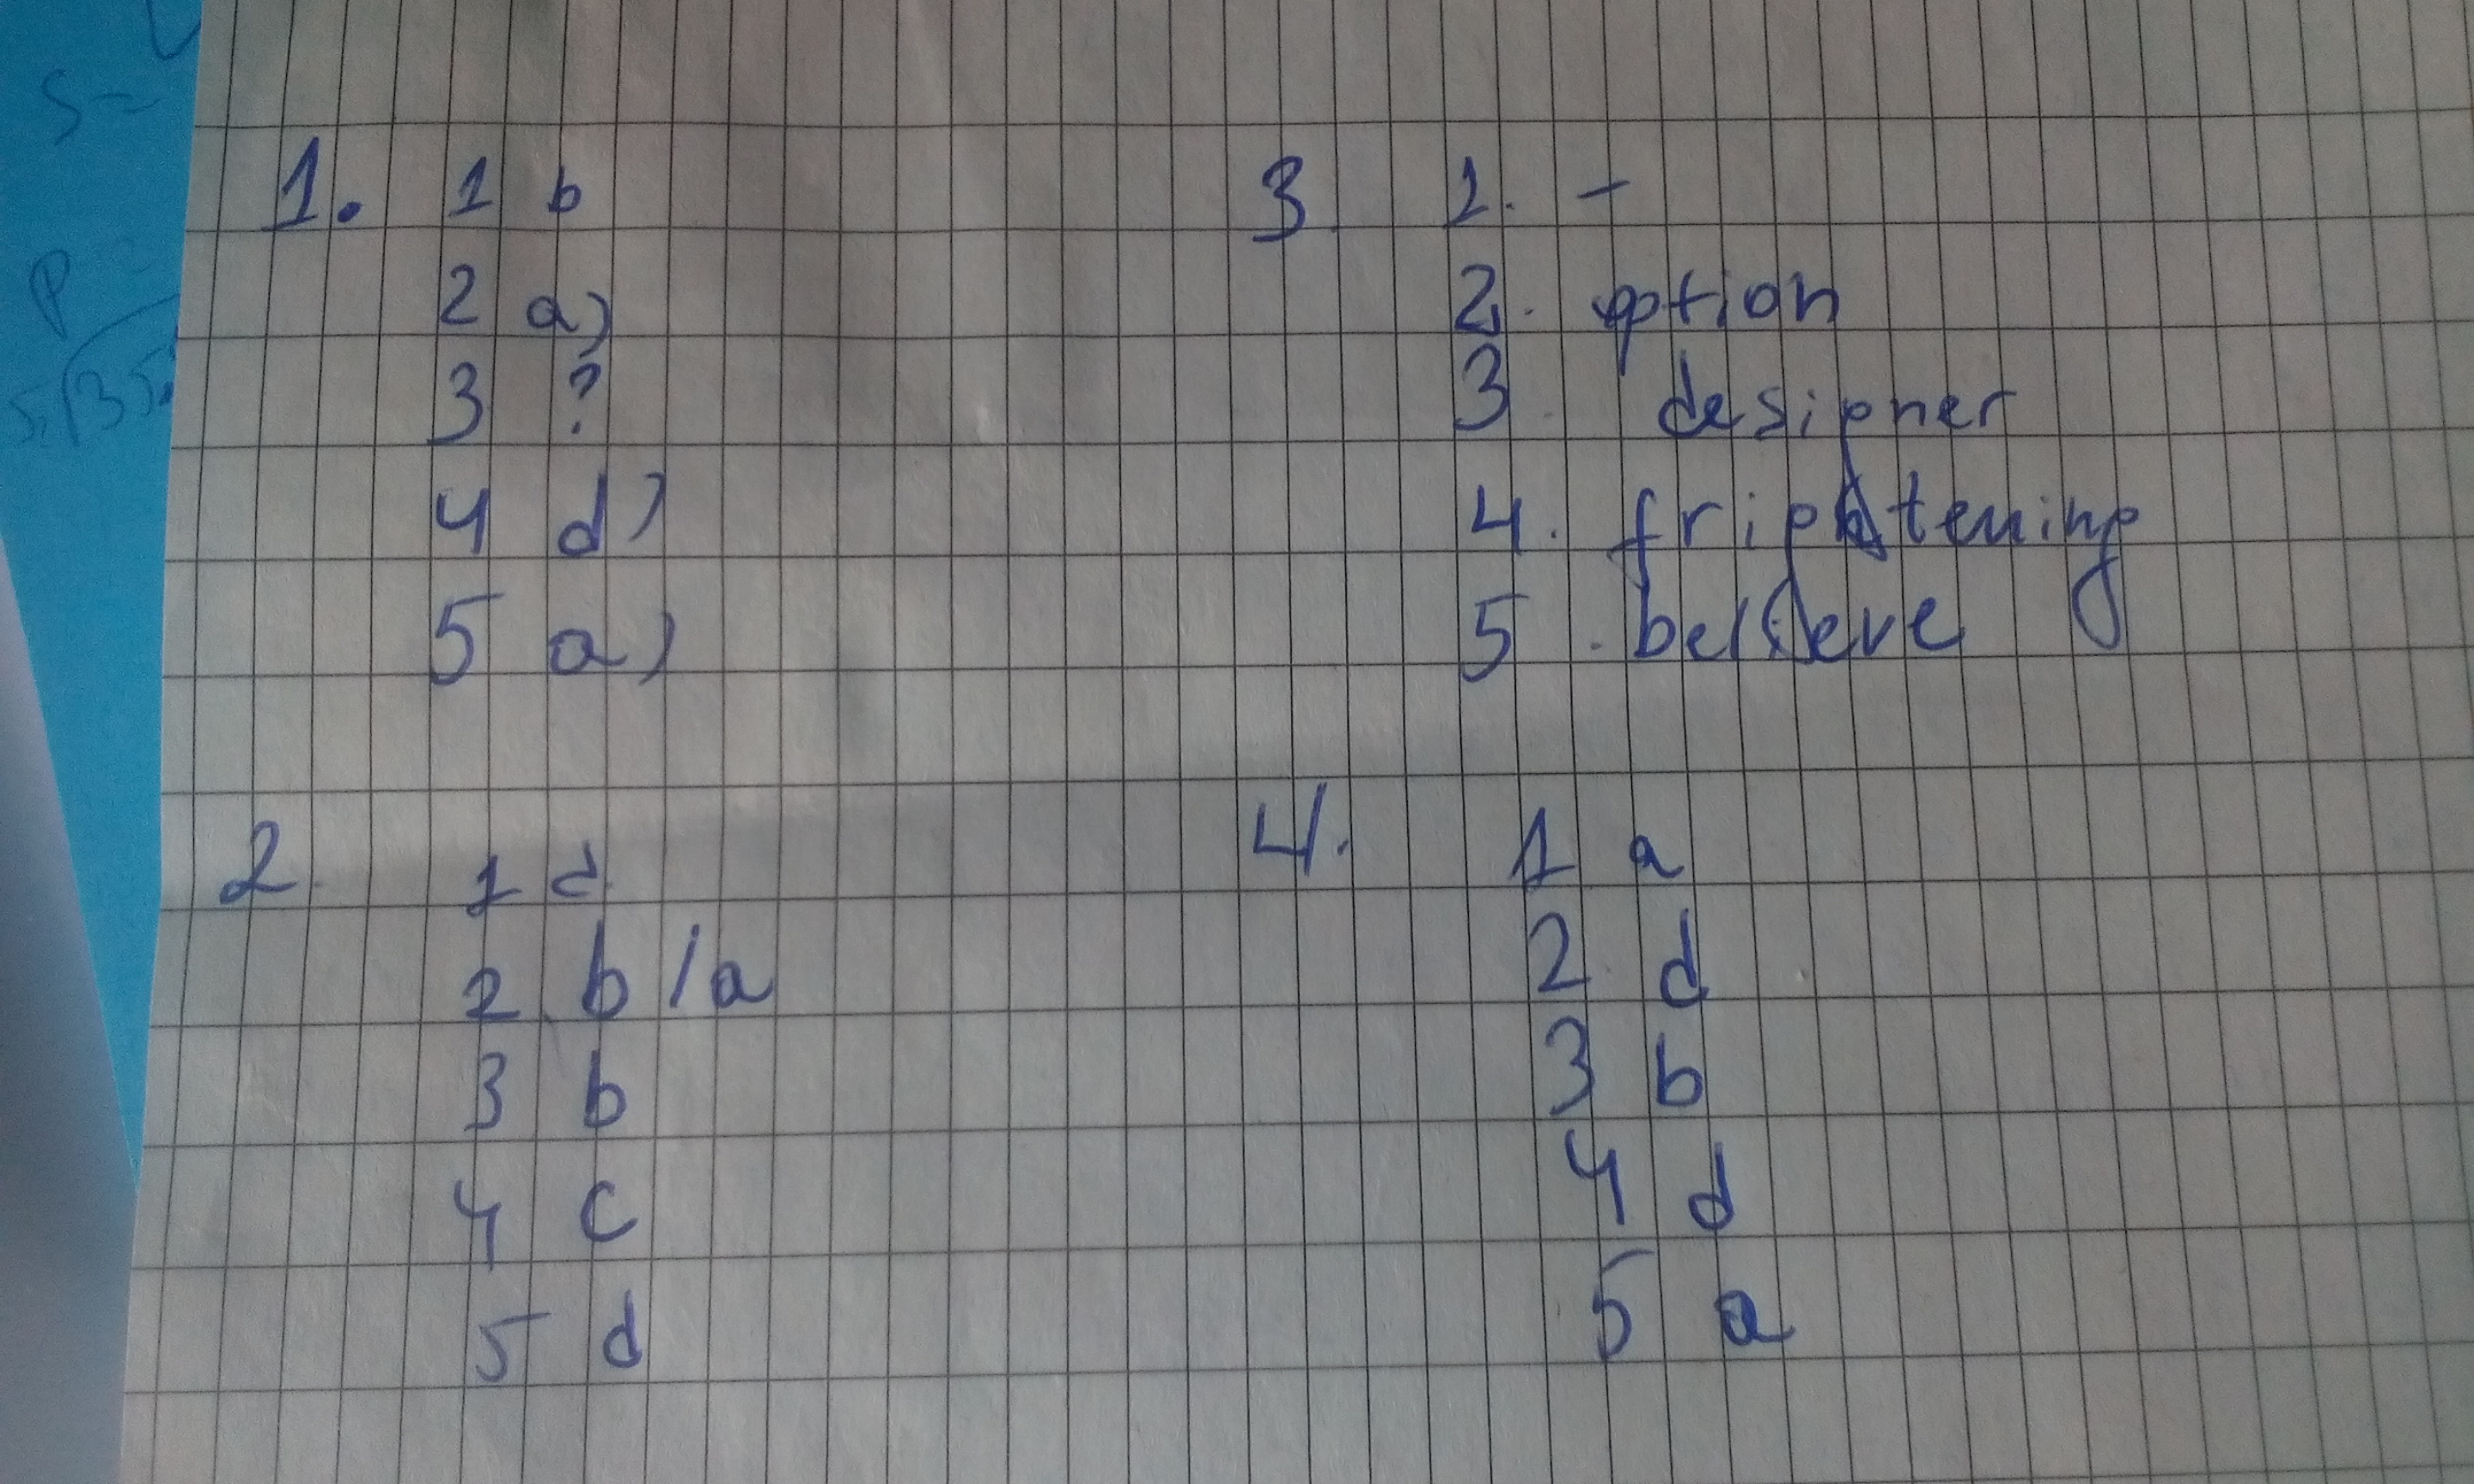 S=
P=
1. 1 b
2 a)
3 ?
4 d)
5 a)
2. 1 d
2. b/a
3 b
4 c
5 d
3. 1. -
2. option
3. designer
4. frightening
5. believe
4. 1 a
2 d
3 b
4 d
5 a